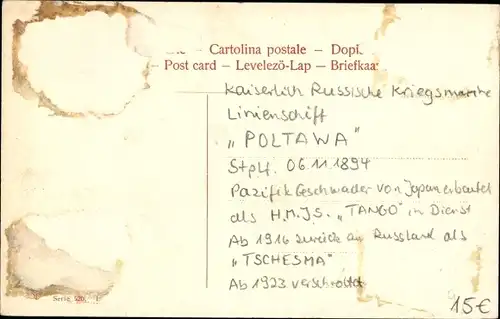 – Cartolina postale – Dopi.
– Post card – Levelező-Lap – Briefkaa
Kaiserlich Russische Kriegsmarine
Linienschiff
„POLTAWA"
Stplf. 06.11.1894
Pazifik Geschwader von Japan erbeutet
als H.M.J.S. „TANGO" in Dienst
Ab 1916 zurück an Russland als
„TSCHESMA"
Ab 1923 verschrottet
Serie
15€